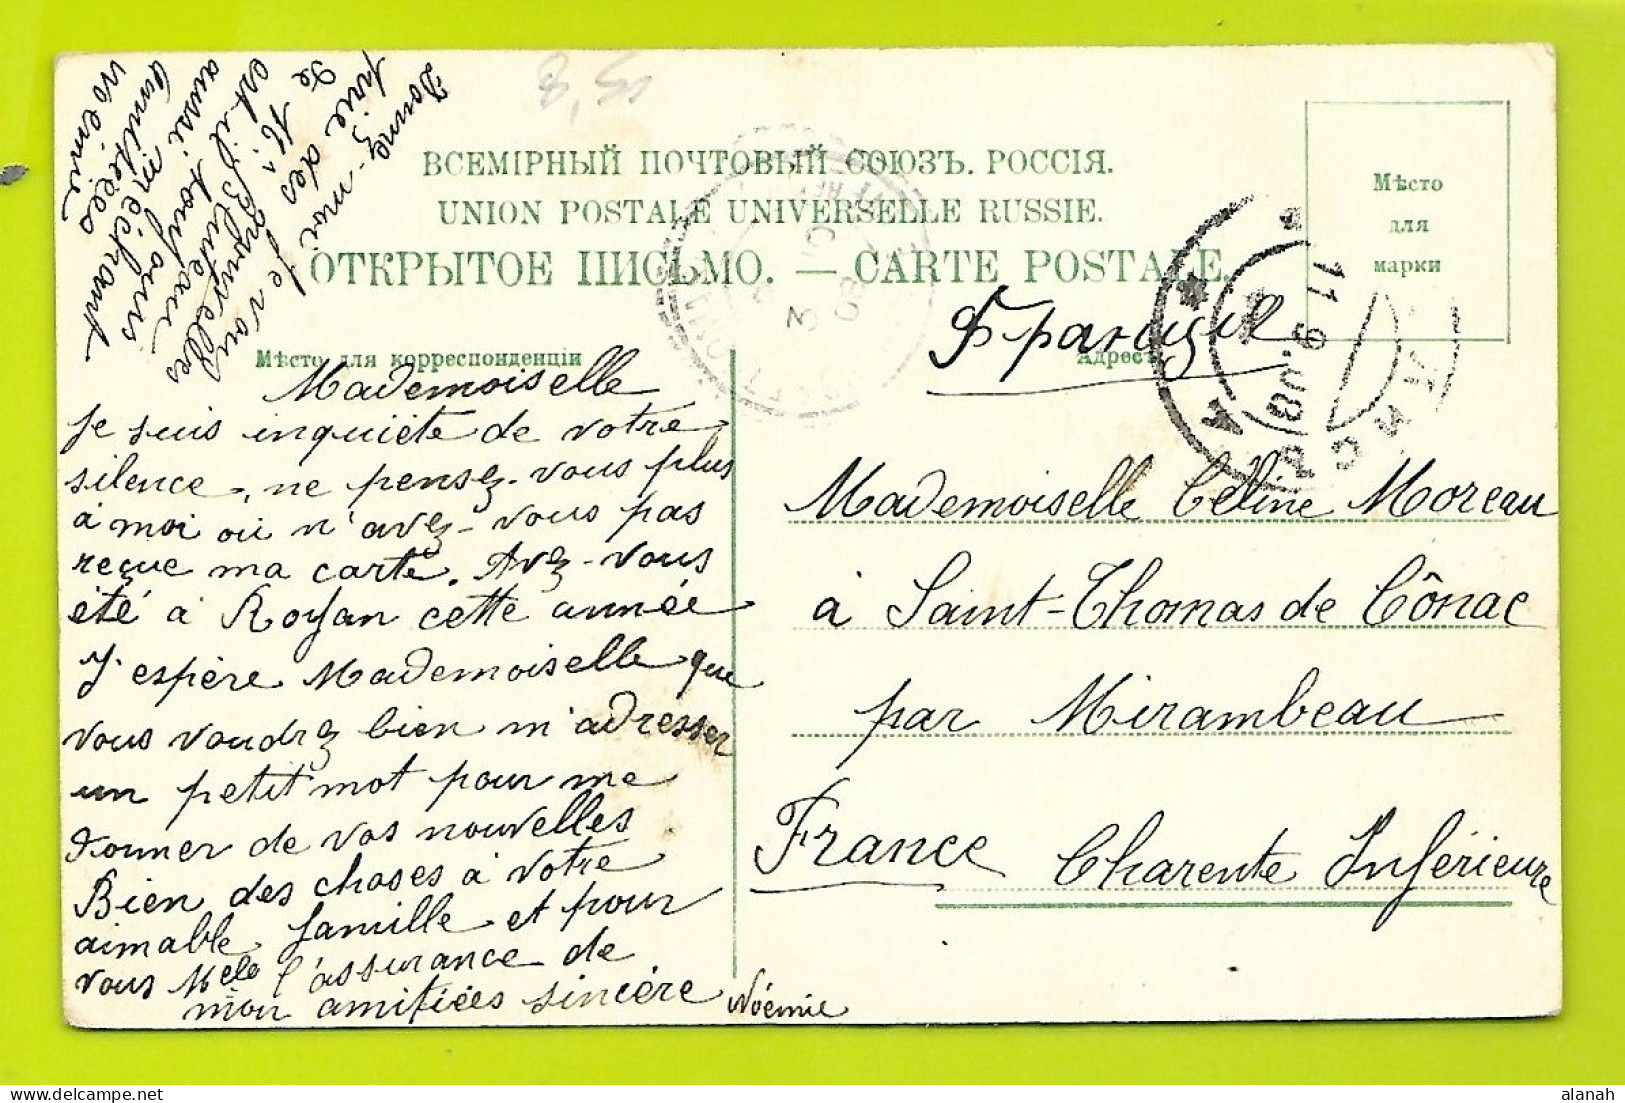 8,51
ВСЕМІРНЫЙ ПОЧТОВЫЙ СОЮЗЪ. РОССІЯ.
UNION POSTALE UNIVERSELLE RUSSIE.
ОТКРЫТОЕ ПИСЬМО. — CARTE POSTALE.
Мѣсто
для
марки
Мѣсто для корреспонденціи
Адресъ
Франція
11.9.08
Donnez-moi
je vous
prie des
nouvelles
De Mr
Bluteau
est il toujours
aussi méchant
amitiées
Noémie
Mademoiselle
Je suis inquiéte de votre
silence, ne pensez-vous plus
à moi où n'avez-vous pas
reçue ma carte. Avez-vous
été à Royan cette année
J'espère Mademoiselle que
vous voudrez bien m'adresser
un petit mot pour me
donner de vos nouvelles
Bien des choses à votre
aimable famille et pour
vous Melle l'assurance de
mon amitiées sincére Noémie
Mademoiselle Céline Moreau
à Saint-Thomas de Cônac
par Mirambeau
France Charente Inférieure
alanah